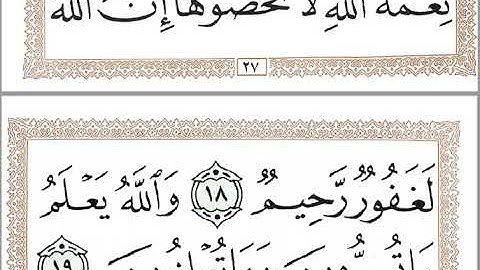 نِعْمَةَ ٱللَّهِ لَا تُحْصُوهَا إِنَّ ٱللَّهَ
٢٧
لَغَفُورٌ رَّحِيمٌ ١٨ وَٱللَّهُ يَعْلَمُ
مَا تُسِرُّونَ وَمَا تُعْلِنُونَ ١٩